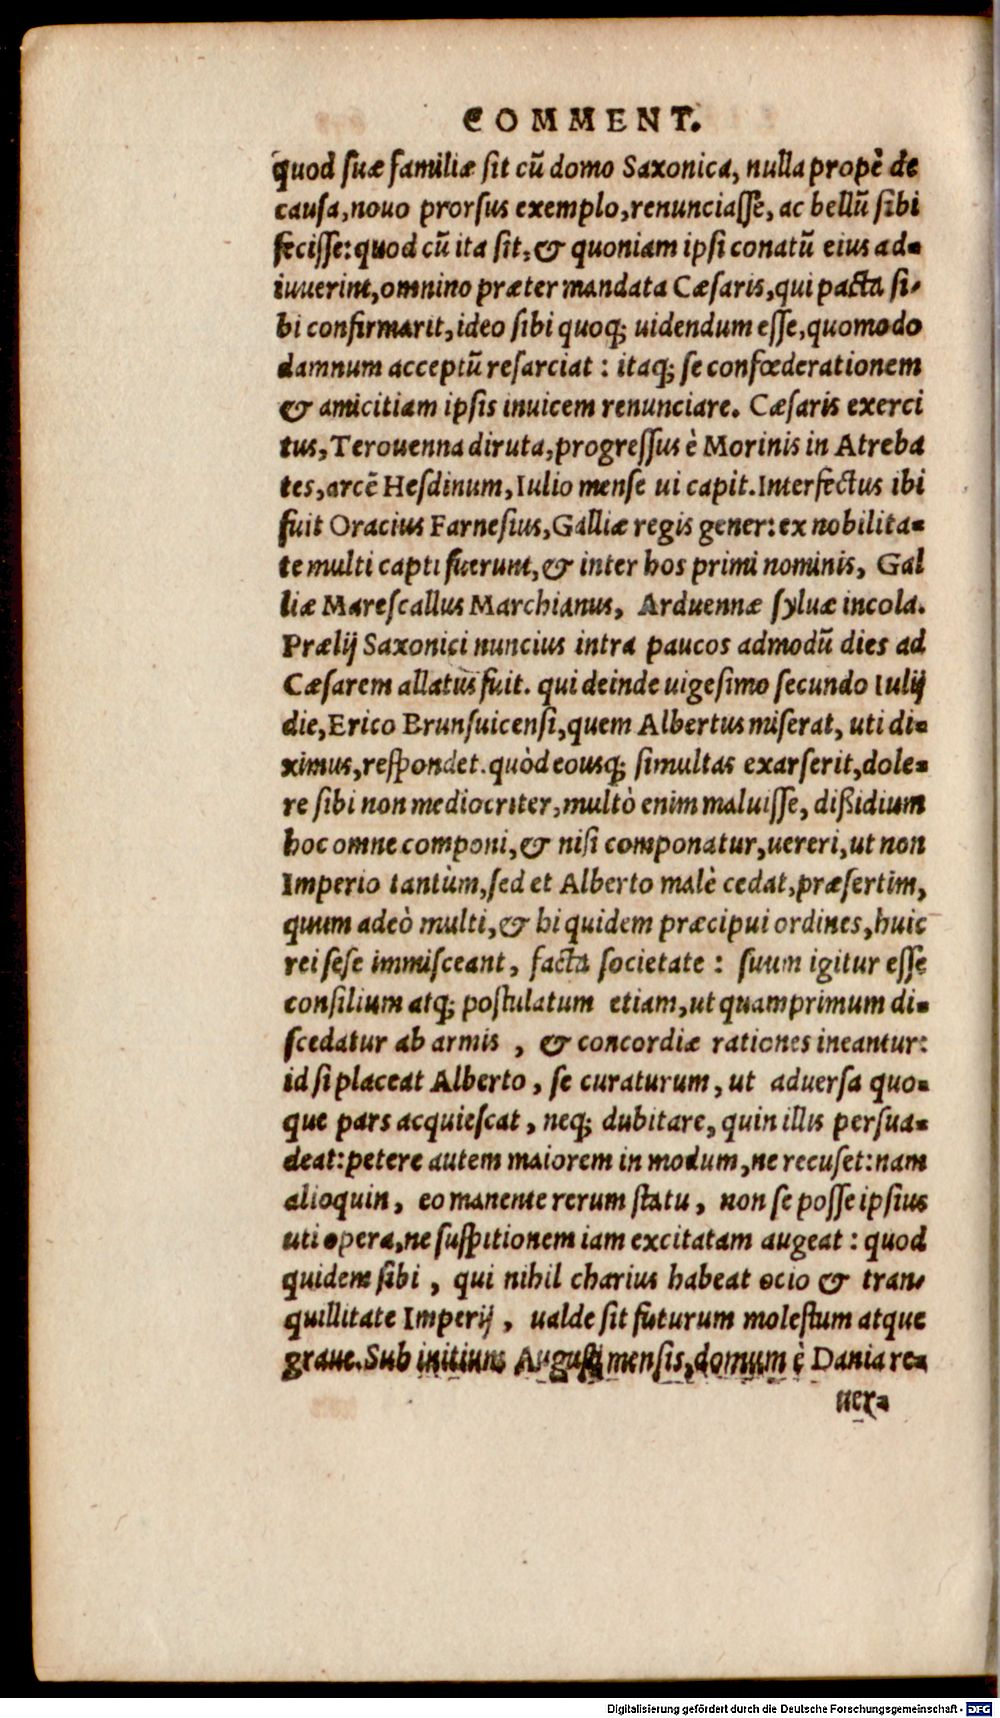 COMMENT.
quod suæ familiæ sit cũ domo Saxonica, nulla propè de
causa, nouo prorsus exemplo, renunciasse, ac bellũ sibi
fecisse: quod cũ ita sit, & quoniam ipsi conatũ eius ad-
iuuerint, omnino præter mandata Cæsaris, qui pacta si-
bi confirmarit, ideo sibi quoq; uidendum esse, quomodo
damnum acceptũ resarciat: itaq; se confœderationem
& amicitiam ipsis inuicem renunciare. Cæsaris exerci
tus, Terouenna diruta, progressus è Morinis in Atreba
tes, arcẽ Hesdinum, Iulio mense ui capit. Interfectus ibi
fuit Oracius Farnesius, Galliæ regis gener: ex nobilita-
te multi capti fuerunt, & inter hos primi nominis, Gal
liæ Marescallus Marchianus, Arduennæ syluæ incola.
Prælij Saxonici nuncius intra paucos admodũ dies ad
Cæsarem allatus fuit. qui deinde uigesimo secundo Iulij
die, Erico Brunsuicensi, quem Albertus miserat, uti di-
ximus, respondet. quòd eousq; simultas exarserit, dole-
re sibi non mediocriter, multò enim maluisse, dißidium
hoc omne componi, & nisi componatur, uereri, ut non
Imperio tantùm, sed et Alberto malè cedat, præsertim,
quum adeò multi, & hi quidem præcipui ordines, huic
rei sese immisceant, facta societate: suum igitur esse
consilium atq; postulatum etiam, ut quamprimum di-
scedatur ab armis, & concordiæ rationes ineantur:
id si placeat Alberto, se curaturum, ut aduersa quo-
que pars acquiescat, neq; dubitare, quin illis persua-
deat: petere autem maiorem in modum, ne recuset: nam
alioquin, eo manente rerum statu, non se posse ipsius
uti opera, ne suspitionem iam excitatam augeat: quod
quidem sibi, qui nihil charius habeat ocio & tran-
quillitate Imperij, ualde sit futurum molestum atque
graue. Sub initium Augusti mensis, domum è Dania re-
uer-
Digitalisierung gefördert durch die Deutsche Forschungsgemeinschaft - DFG